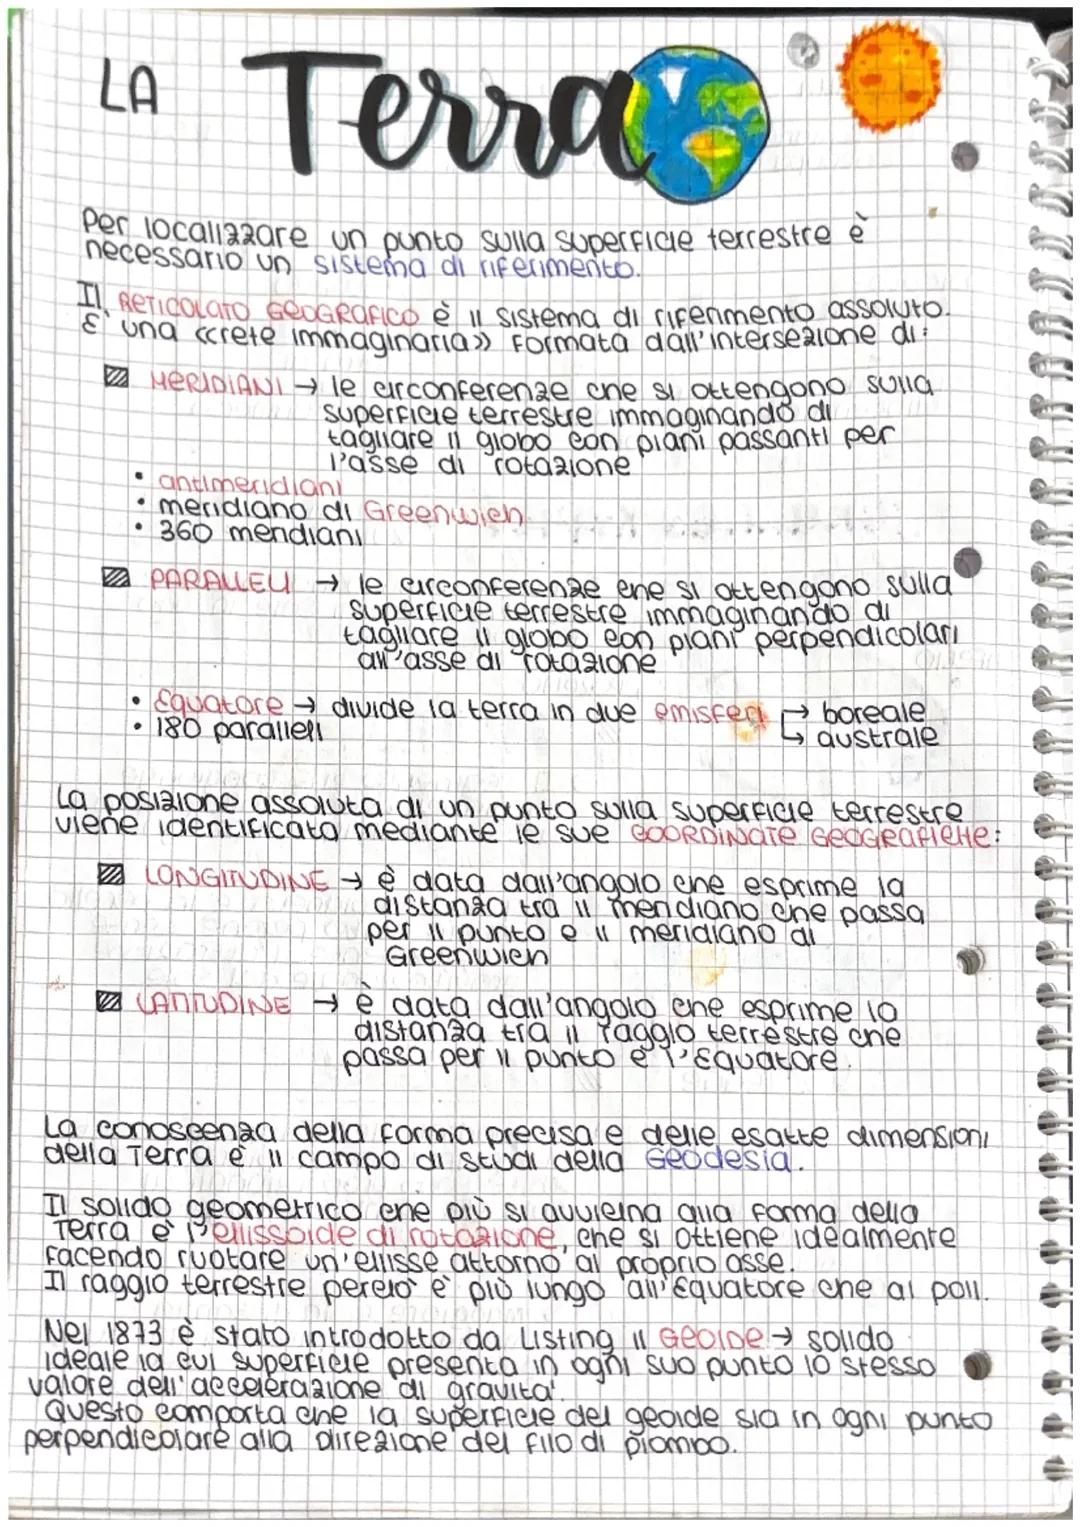 LA Terra
Per localizzare un punto sulla superficie terrestre è
necessario un sistema di riferimento.
Il RETICOLATO GEOGRAFICO è il sistema di riferimento assoluto.
E' una «rete immaginaria» formata dall'intersezione di:
MERIDIANI → le circonferenze che si ottengono sulla
superficie terrestre immaginando di
tagliare il globo con piani passanti per
l'asse di rotazione
• antimeridiani
• meridiano di Greenwich
• 360 meridiani
PARALLELI → le circonferenze che si ottengono sulla
superficie terrestre immaginando di
tagliare il globo con piani perpendicolari
all'asse di rotazione
• Equatore → divide la terra in due emisferi → boreale
• 180 paralleli ↳ australe
La posizione assoluta di un punto sulla superficie terrestre
viene identificata mediante le sue COORDINATE GEOGRAFICHE:
LONGITUDINE → è data dall'angolo che esprime la
distanza tra il meridiano che passa
per il punto e il meridiano di
Greenwich
LATITUDINE → è data dall'angolo che esprime la
distanza tra il raggio terrestre che
passa per il punto e l'Equatore.
La conoscenza della forma precisa e delle esatte dimensioni
della Terra è il campo di studi della Geodesia.
Il solido geometrico che più si avvicina alla forma della
Terra è l'ellissoide di rotazione, che si ottiene idealmente
facendo ruotare un'ellisse attorno al proprio asse.
Il raggio terrestre perciò è più lungo all'Equatore che ai poli.
Nel 1873 è stato introdotto da Listing il GEOIDE → solido
ideale la cui superficie presenta in ogni suo punto lo stesso
valore dell'accelerazione di gravita'.
Questo comporta che la superficie del geoide sia in ogni punto
perpendicolare alla direzione del filo di piombo.